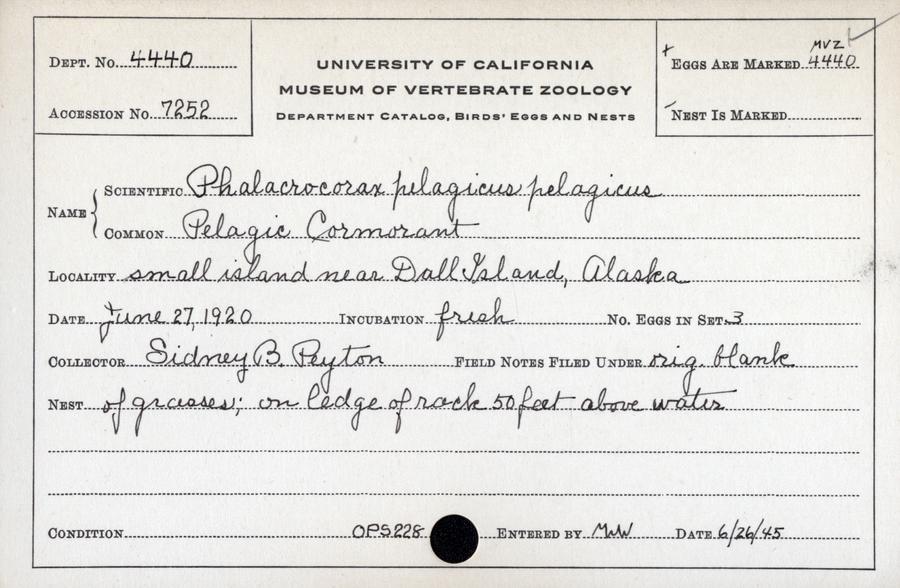 Dept. No. 4440
Accession No. 7252
UNIVERSITY OF CALIFORNIA
MUSEUM OF VERTEBRATE ZOOLOGY
Department Catalog, Birds' Eggs and Nests
MVZ
Eggs Are Marked 4440
Nest Is Marked
Name
Scientific Phalacrocorax pelagicus pelagicus
Common Pelagic Cormorant
Locality small island near Dall Island, Alaska
Date June 27, 1920 Incubation fresh No. Eggs in Set 3
Collector Sidney B. Peyton Field Notes Filed Under orig. blank
Nest of grasses; on ledge of rock 50 feet above water
Condition OPS228 Entered by MWW Date 6/26/45